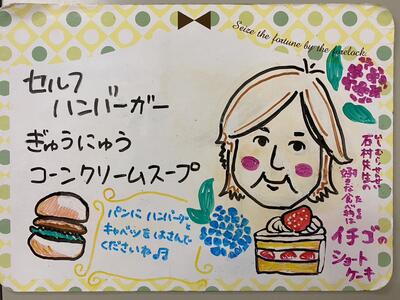 Seize the fortune by the forelock.
セルフ
ハンバーガー
ぎゅうにゅう
コーンクリームスープ
パンに ハンバーグと
キャベツを はさんで
くださいね♫
いしむらせんせい
石村先生の
た もの
好きな食べ物は
イチゴの
ショート
ケーキ